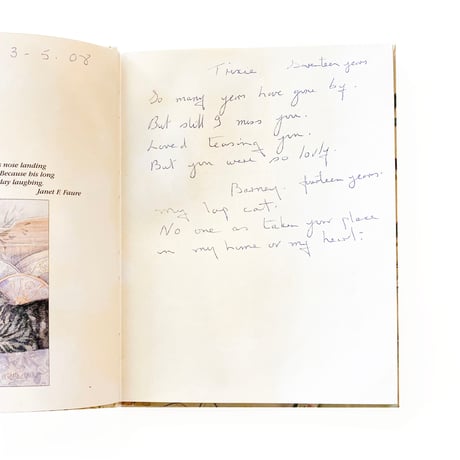 3-5.08
nose landing
Because his long
day laughing.
Janet F. Faure
Trixie Seventeen years
So many years have gone by.
But still I miss you.
Loved teasing you.
But you were so lovly.
Barney. fourteen years.
my lap cat.
No one as taken your place
in my home or my heart.